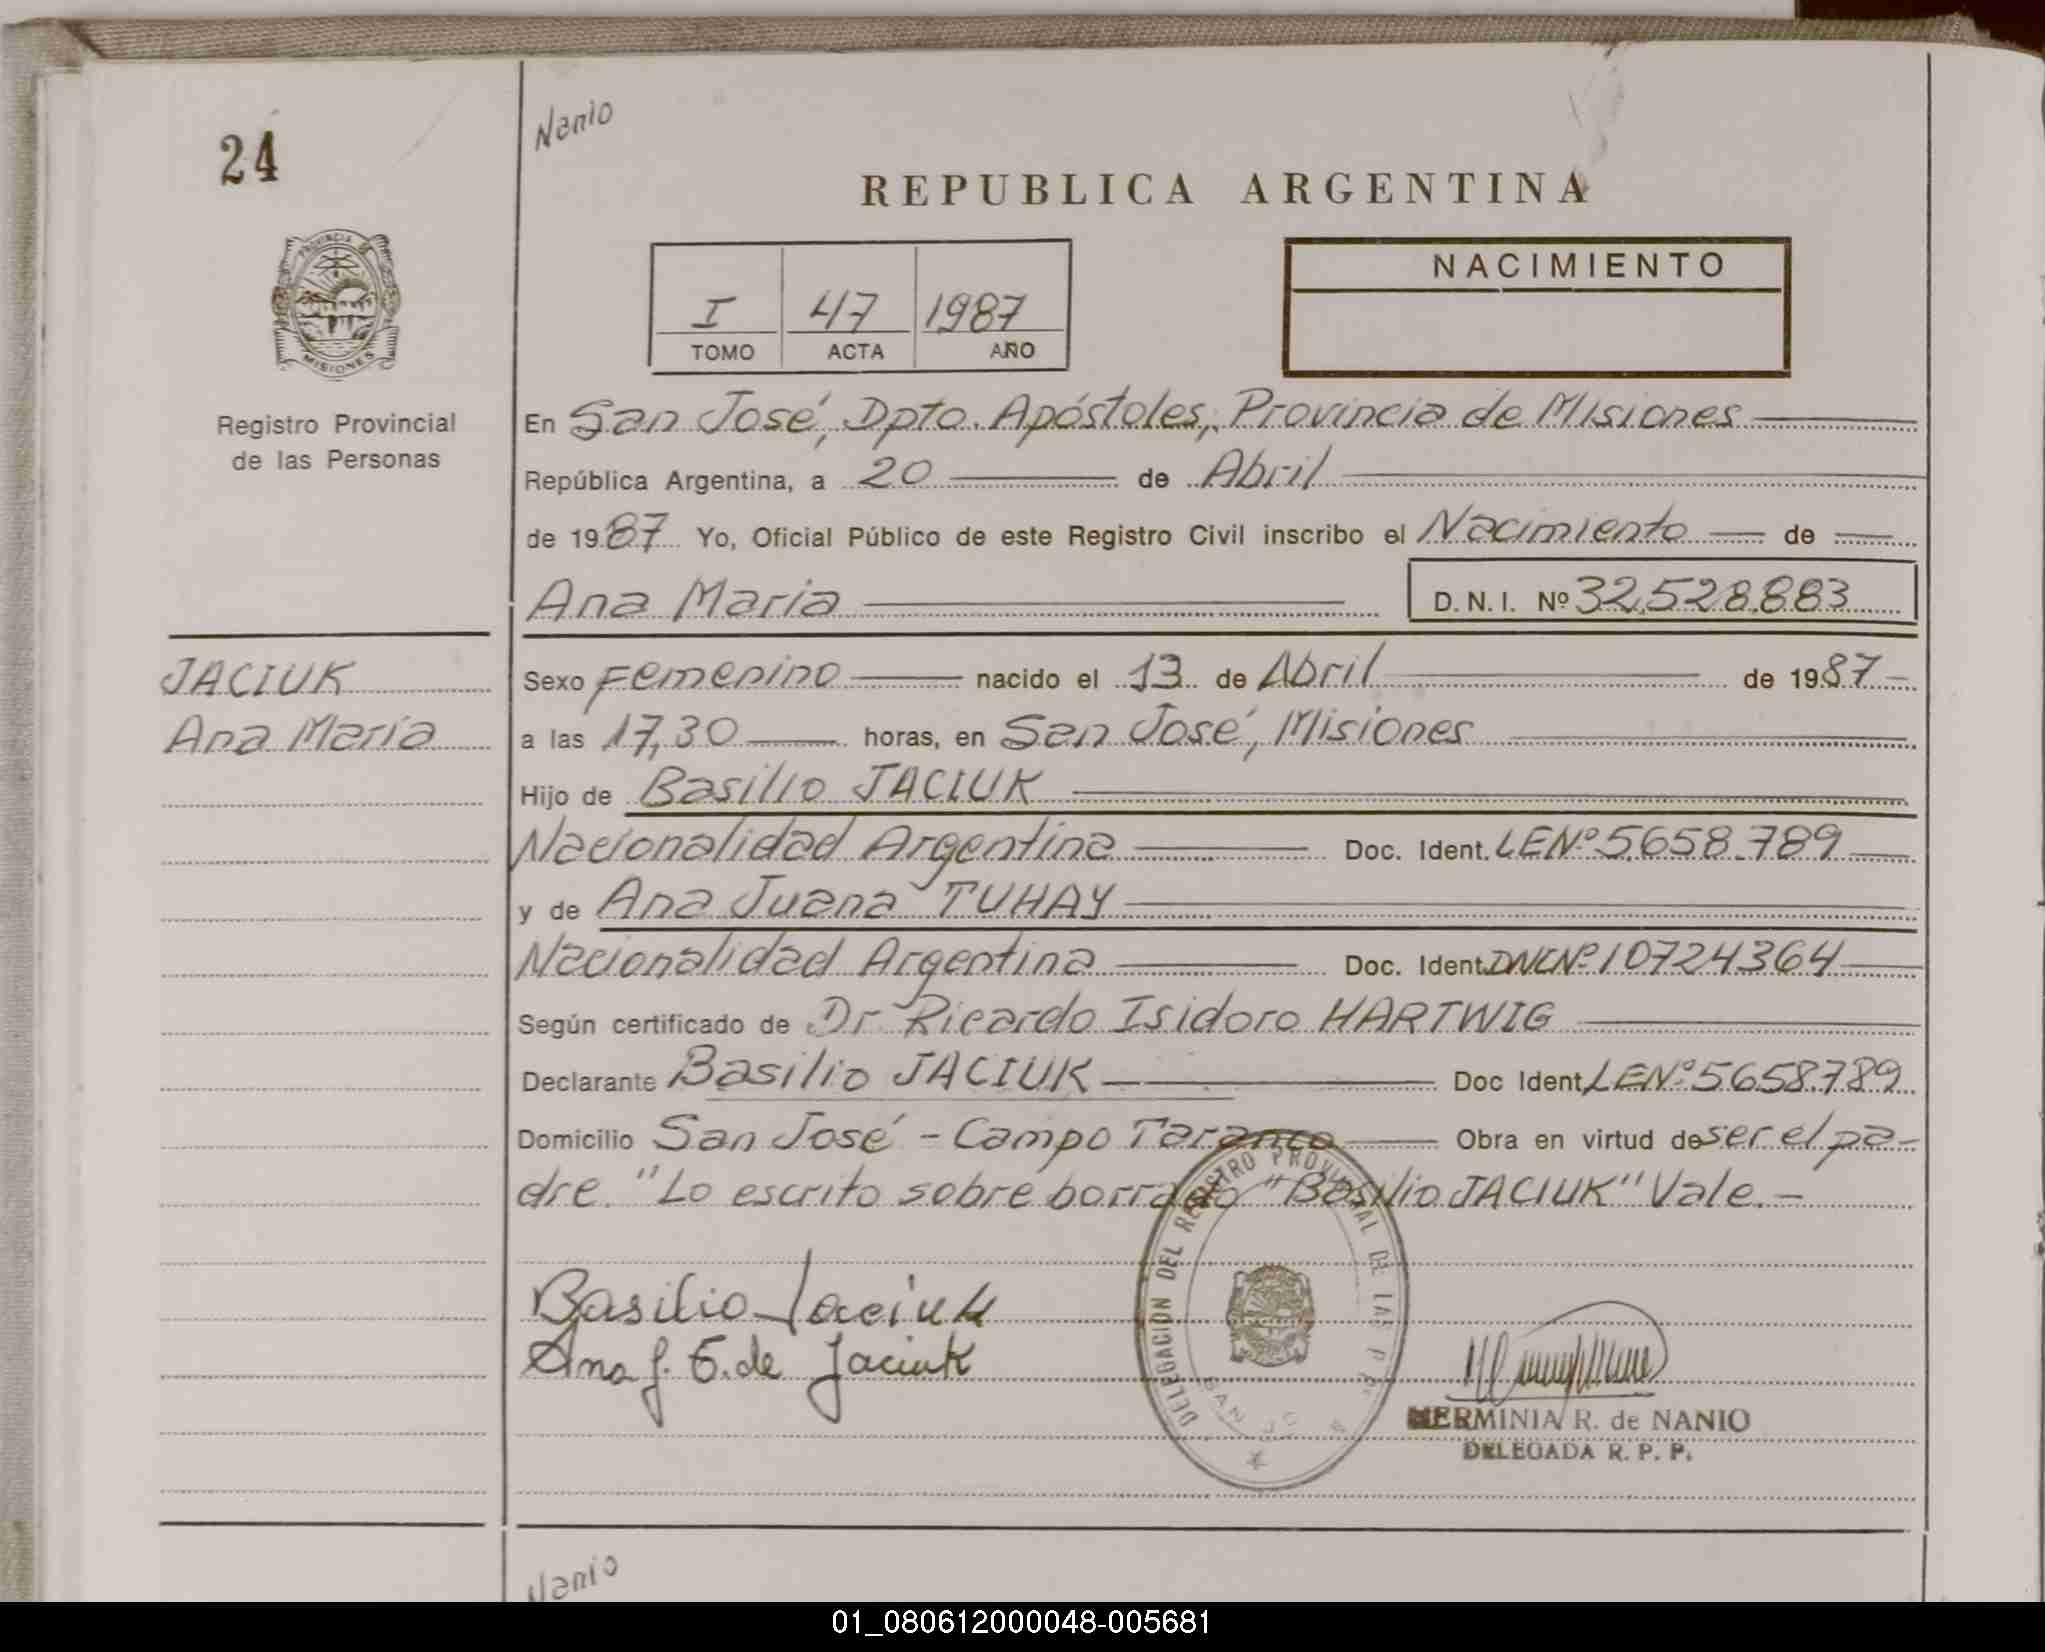 Nanio
24
REPUBLICA ARGENTINA
PROVINCIA DE
MISIONES
NACIMIENTO
I 47 1987
TOMO ACTA AÑO
Registro Provincial
de las Personas
En San José, Dpto. Apóstoles, Provincia de Misiones
República Argentina, a 20 de Abril
de 1987 Yo, Oficial Público de este Registro Civil inscribo el Nacimiento de
Ana Maria D.N.I. Nº 32.528.883
JACIUK
Ana María
Sexo Femenino nacido el 13 de Abril de 1987
a las 17,30 horas, en San José, Misiones
Hijo de Basilio JACIUK
Nacionalidad Argentina Doc. Ident. LENº 5658.789
y de Ana Juana TUHAY
Nacionalidad Argentina Doc. Ident. DNINº 10724364
Según certificado de Dr Ricardo Isidoro HARTWIG
Declarante Basilio JACIUK Doc Ident. LENº 5658789
Domicilio San José - Campo Taranco Obra en virtud de ser el pa-
dre. "Lo escrito sobre borrado "Basilio JACIUK" Vale.-
Basilio Jaciuk
Ana J. T. de Jaciuk
DELEGACION DEL REGISTRO PROVINCIAL DE LAS P P.
SAN JOSE
HERMINIA R. de NANIO
DELEGADA R. P. P.
Nanio
01_080612000048-005681